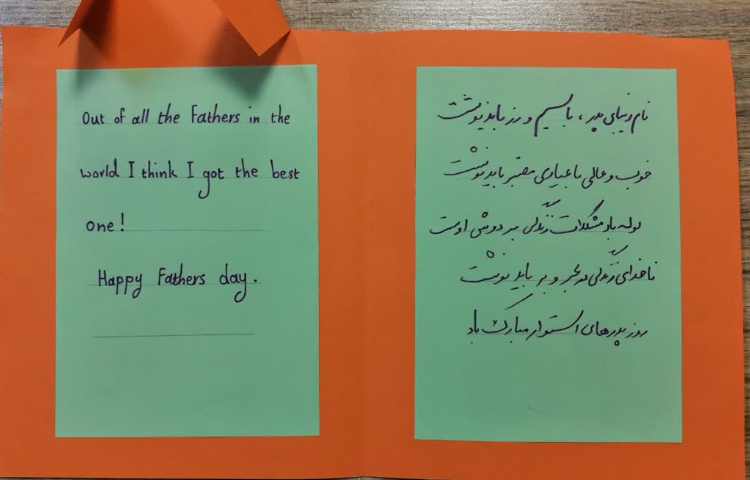 Out of all the Fathers in the
world I think I got the best
one!
Happy Fathers day.
نام زیبای پدر، با سیم و زر باید نوشت
خوب و عالی با عیاری معتبر باید نوشت
کوله بار مشکلات زندگی بر دوش اوست
ناخدای زندگی در بحر و بر باید نوشت
روز پدرهای استوار مبارک باد